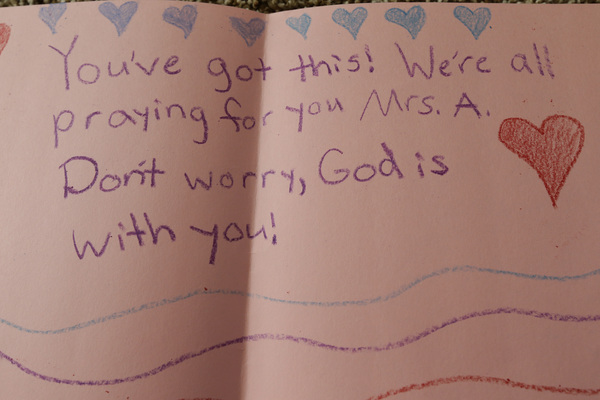 You've got this! We're all
praying for you Mrs. A.
Don't worry, God is
with you!